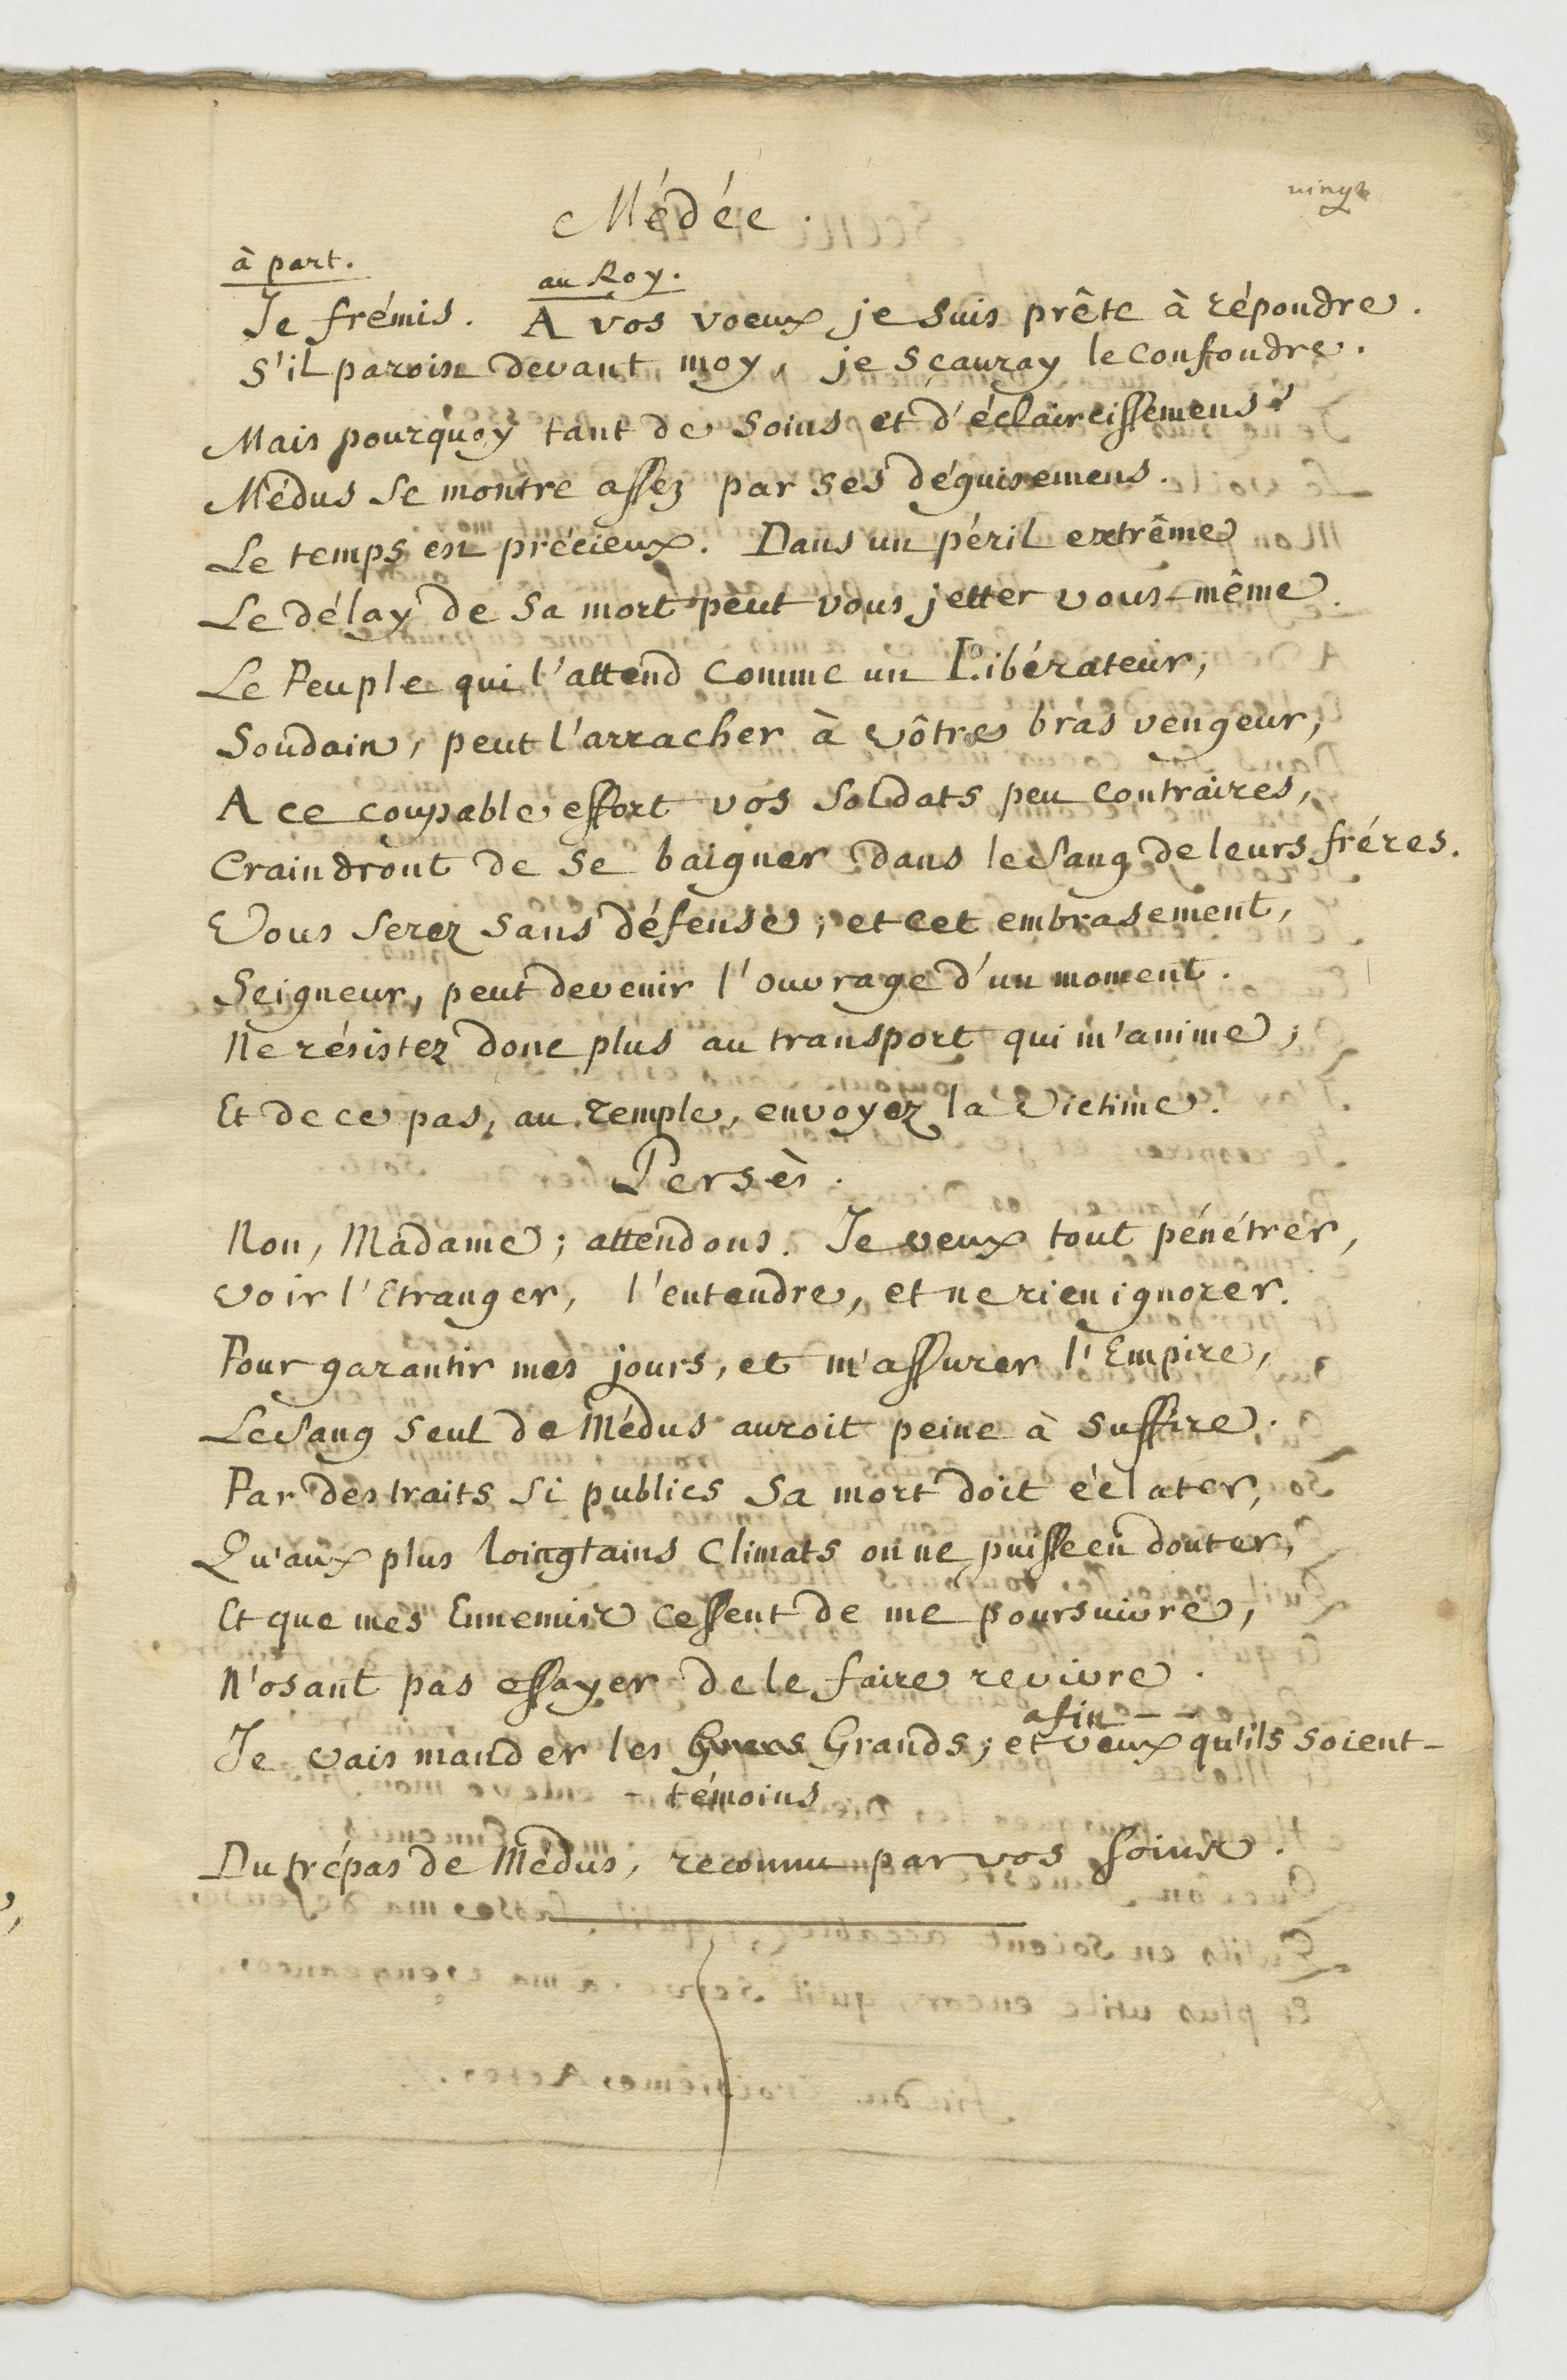 vingt
Médée.
à part.
au Roy.
Je frémis. A vos voeux je suis prête à répondre.
S'il paroist devant moy, je sçauray le confondre.
Mais pourquoy tant de soins et d'éclaircissemens?
Médus se montre assez par ses déguisemens.
Le temps est précieux. Dans un péril extrême
Le délay de sa mort peut vous jetter vous-même.
Le Peuple qui l'attend comme un Libérateur,
Soudain, peut l'arracher à vôtre bras vengeur,
A ce coupable effort vos soldats peu contraires,
Craindront de se baigner dans le sang de leurs fréres.
Vous serez sans défense; et cet embrasement,
Seigneur, peut devenir l'ouvrage d'un moment.
Ne résistez donc plus au transport qui m'anime;
Et de ce pas, au Temple, envoyez la victime.
Persès.
Non, Madame; attendons. Je veux tout pénétrer,
Voir l'Etranger, l'entendre, et ne rien ignorer.
Pour garantir mes jours, et m'assurer l'Empire,
Le sang seul de Médus auroit peine à suffire.
Par des traits si publics sa mort doit éclater,
Qu'aux plus loingtains climats on ne puisse en douter,
Et que mes Ennemis cessent de me poursuivre,
N'osant pas essayer de le faire revivre.
afin - -
Je vais mander les Grands; et veux qu'ils soient-
- témoins
Du trépas de Médus, reconnu par vos soins.